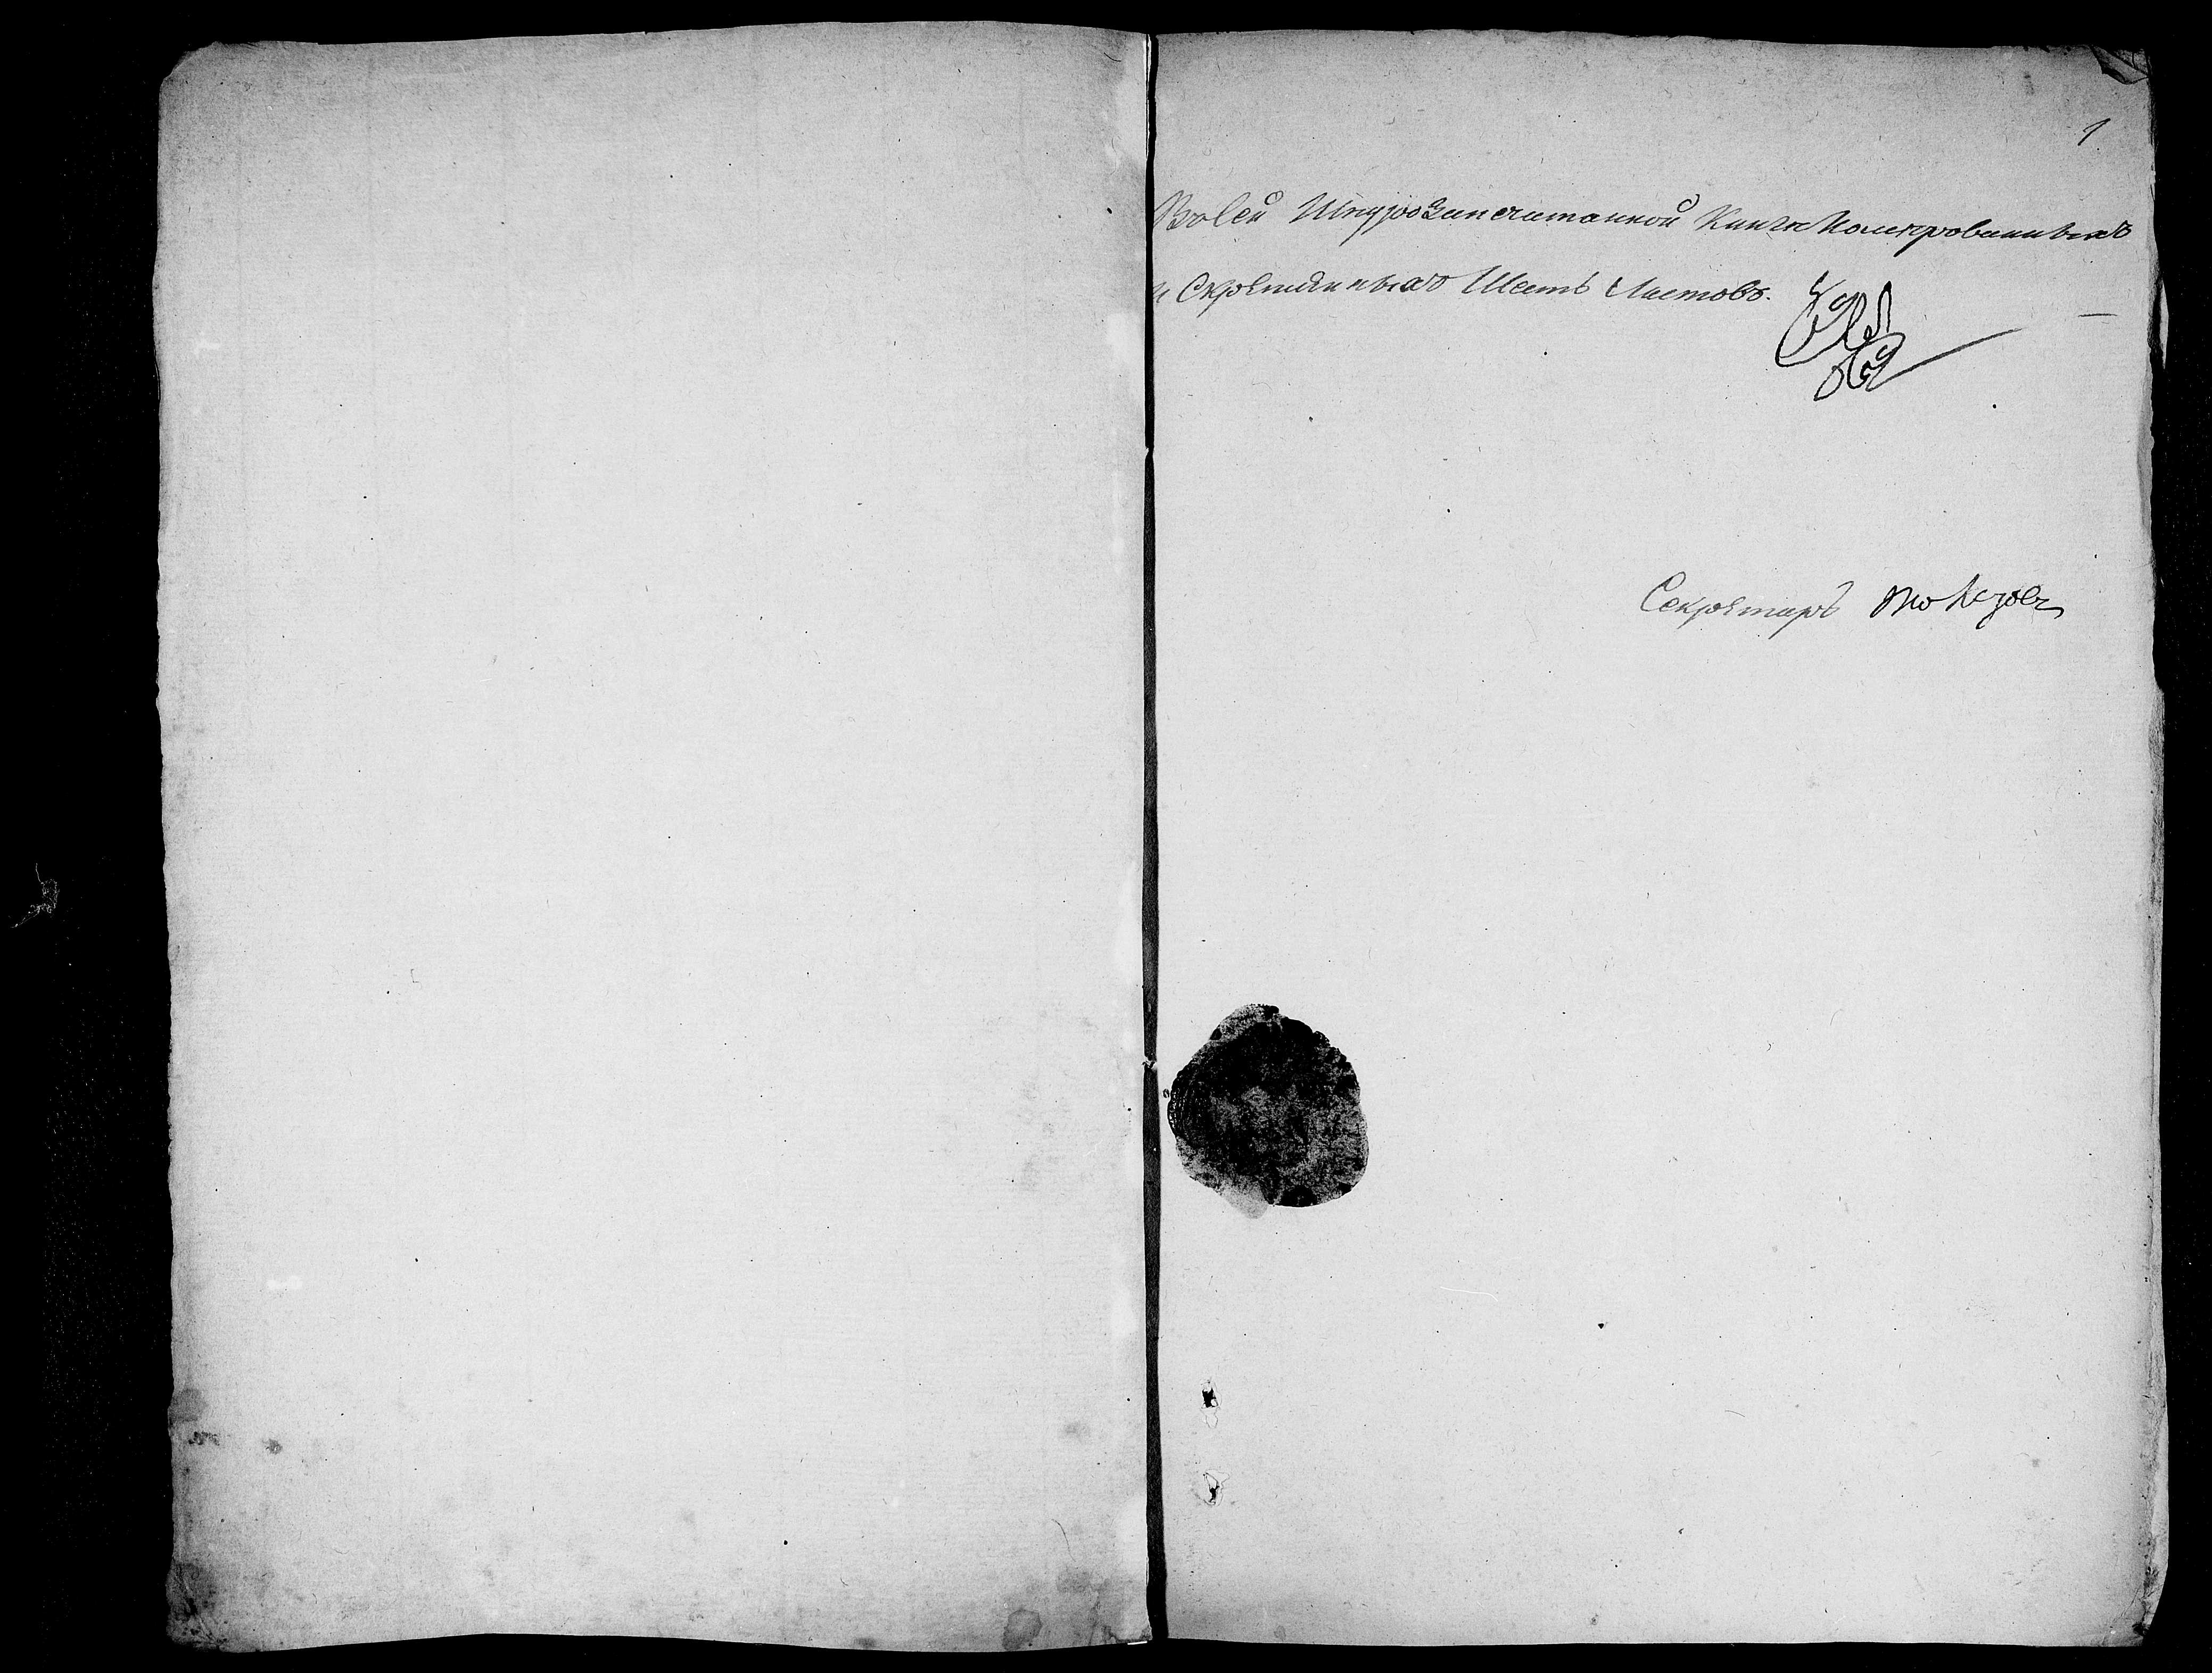 1
Во сей Шнурозапечатанной Книге Номерованныхъ
и Скрепленныхъ Шесть Листовъ.
Секретарь